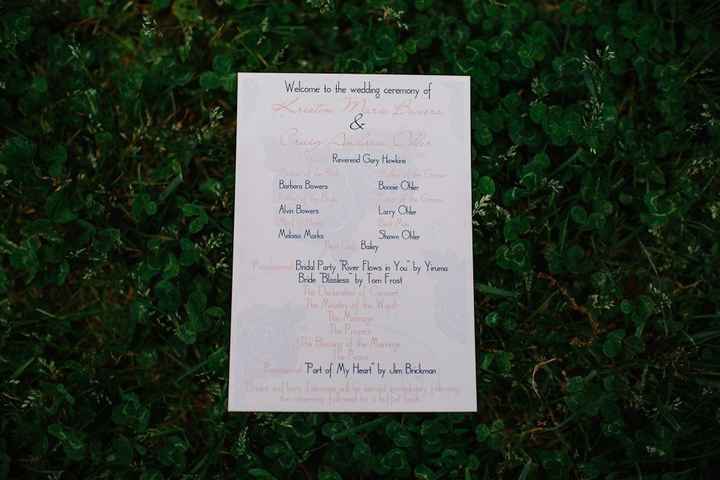 Welcome to the wedding ceremony of
Kristen Marie Bowers
&
Craig Andrew Ohler
Reverend Gary Hawkins
Barbara Bowers Bonnie Ohler
Alvin Bowers Larry Ohler
Melissa Marks Shawn Ohler
Bailey
Processional Bridal Party "River Flows in You" by Yiruma
Bride "Blissless" by Tom Frost
The Declaration of Consent
The Ministry of the Word
The Marriage
The Prayers
The Blessing of the Marriage
The Peace
"Part of My Heart" by Jim Brickman